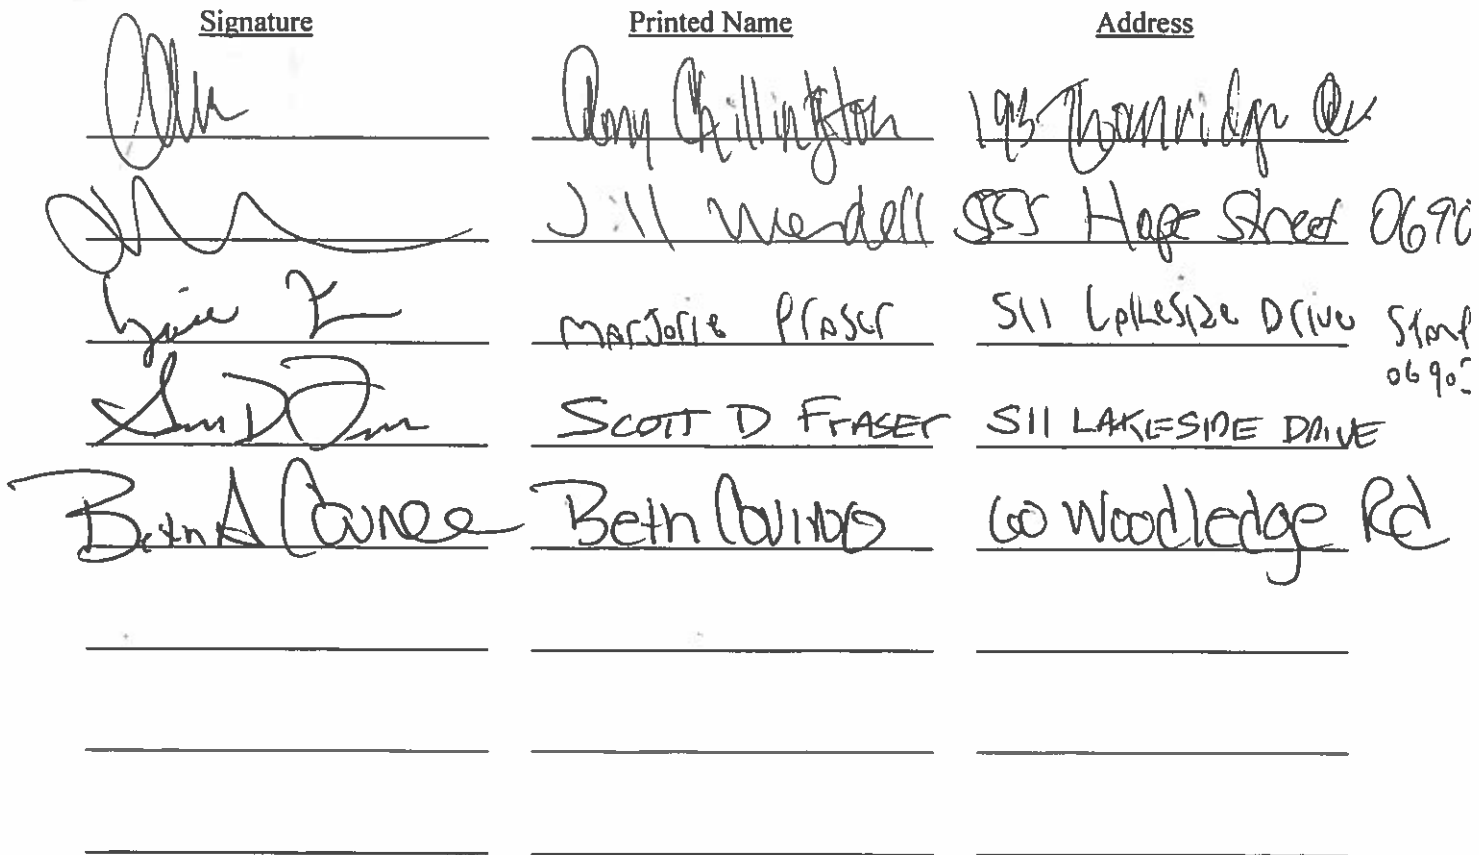 Signature Printed Name Address
Amy Chillington 193 Thornridge Dr
Jill Wendell 555 Hope Street 0690
Marjorie Fraser 511 Lakeside Drive Stamf
0690
SCOTT D FRASER 511 LAKESIDE DRIVE
Beth A Beth Covino 60 Woodledge Rd